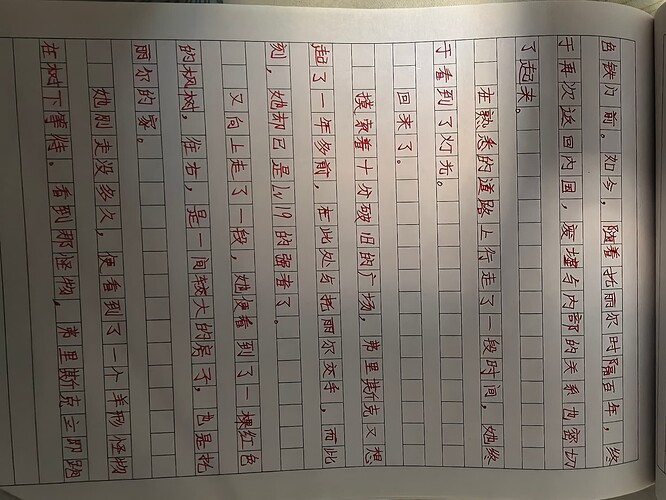 色铁门前。如今，随着托丽尔时隔百年，终
于再次返回内国，废墟与内部的关系也密切
了起来。
在熟悉的道路上行走了一段时间，她终
于看到了灯光。
回来了。
摸索着十分破旧的广场，弗里斯克又想
起了一年多前，在此处与托丽尔交手，而此
刻，她却已是Lv19的强者了。
又向上走了一段，她便看到了一棵红色
的枫树，往右，是一间较大的房子，也是托
丽尔的家。
她刚走没多久，便看到了一个羊形怪物
在树下等待。看到那怪物，弗里斯克立即跑